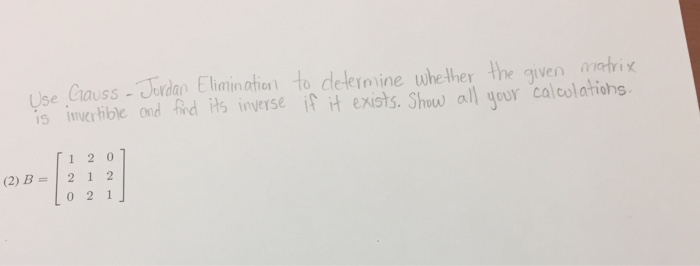 Use Gauss - Jordan Elimination to determine whether the given matrix
is invertible and find its inverse if it exists. Show all your calculations.
(2) B = [ 1 2 0
2 1 2
0 2 1 ]